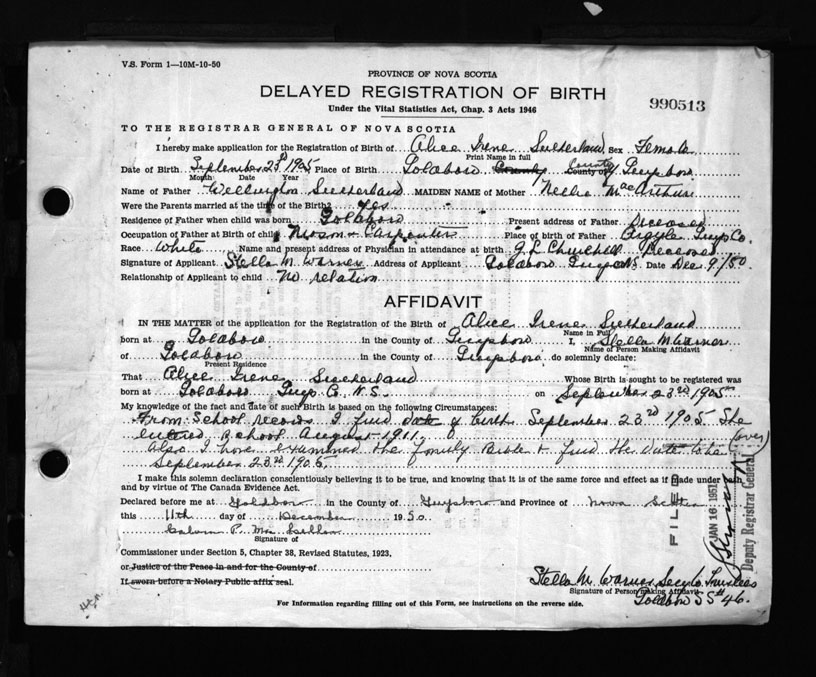 V.S. Form 1—10M-10-50
PROVINCE OF NOVA SCOTIA
DELAYED REGISTRATION OF BIRTH
Under the Vital Statistics Act, Chap. 3 Acts 1946
990513
TO THE REGISTRAR GENERAL OF NOVA SCOTIA
I hereby make application for the Registration of Birth of Alice Irene Sutherland Sex Female
Print Name in full
Date of Birth September 23rd 1905 Place of Birth Goldboro County County of Guysboro
Month Date Year
Name of Father Wellington Sutherland MAIDEN NAME of Mother Nellie MacArthur
Were the Parents married at the time of the Birth? Yes
Residence of Father when child was born Goldboro Present address of Father Deceased
Occupation of Father at Birth of child Mason + Carpenter Place of birth of Father Argyle Guys Co.
Race White Name and present address of Physician in attendance at birth J L Churchill Deceased
Signature of Applicant Stella M. Warner Address of Applicant Goldboro Guys N.S. Date Dec 9/50
Relationship of Applicant to child No relation
AFFIDAVIT
IN THE MATTER of the application for the Registration of Birth of Alice Irene Sutherland
Name in Full
born at Goldboro in the County of Guysboro I, Stella M Warner
Name of Person Making Affidavit
of Goldboro in the County of Guysboro do solemnly declare:
Present Residence
That Alice Irene Sutherland Whose Birth is sought to be registered was
born at Goldboro Guys Co. N.S. on September 23rd 1905
My knowledge of the fact and date of such Birth is based on the following Circumstances:
From School records I find date of birth September 23rd 1905 She
entered school August 1911. (over)
Also I have examined the family Bible + find the date to be
September 23rd 1905.
I make this solemn declaration conscientiously believing it to be true, and knowing that it is of the same force and effect as if made under
and by virtue of The Canada Evidence Act.
Declared before me at Goldboro in the County of Guysboro and Province of Nova Scotia
this 11th day of December 1950
Calvin P.
Signature of
Commissioner under Section 5, Chapter 38, Revised Statutes, 1923.
or Justice of the Peace in and for the County of
If sworn before a Notary Public affix seal.
FILED
JAN 16 1951
Deputy Registrar General
Stella M. Warner Secy to Trustees
Signature of Person making Affidavit
Goldboro SS # 46.
For Information regarding filling out of this Form, see instructions on the reverse side.